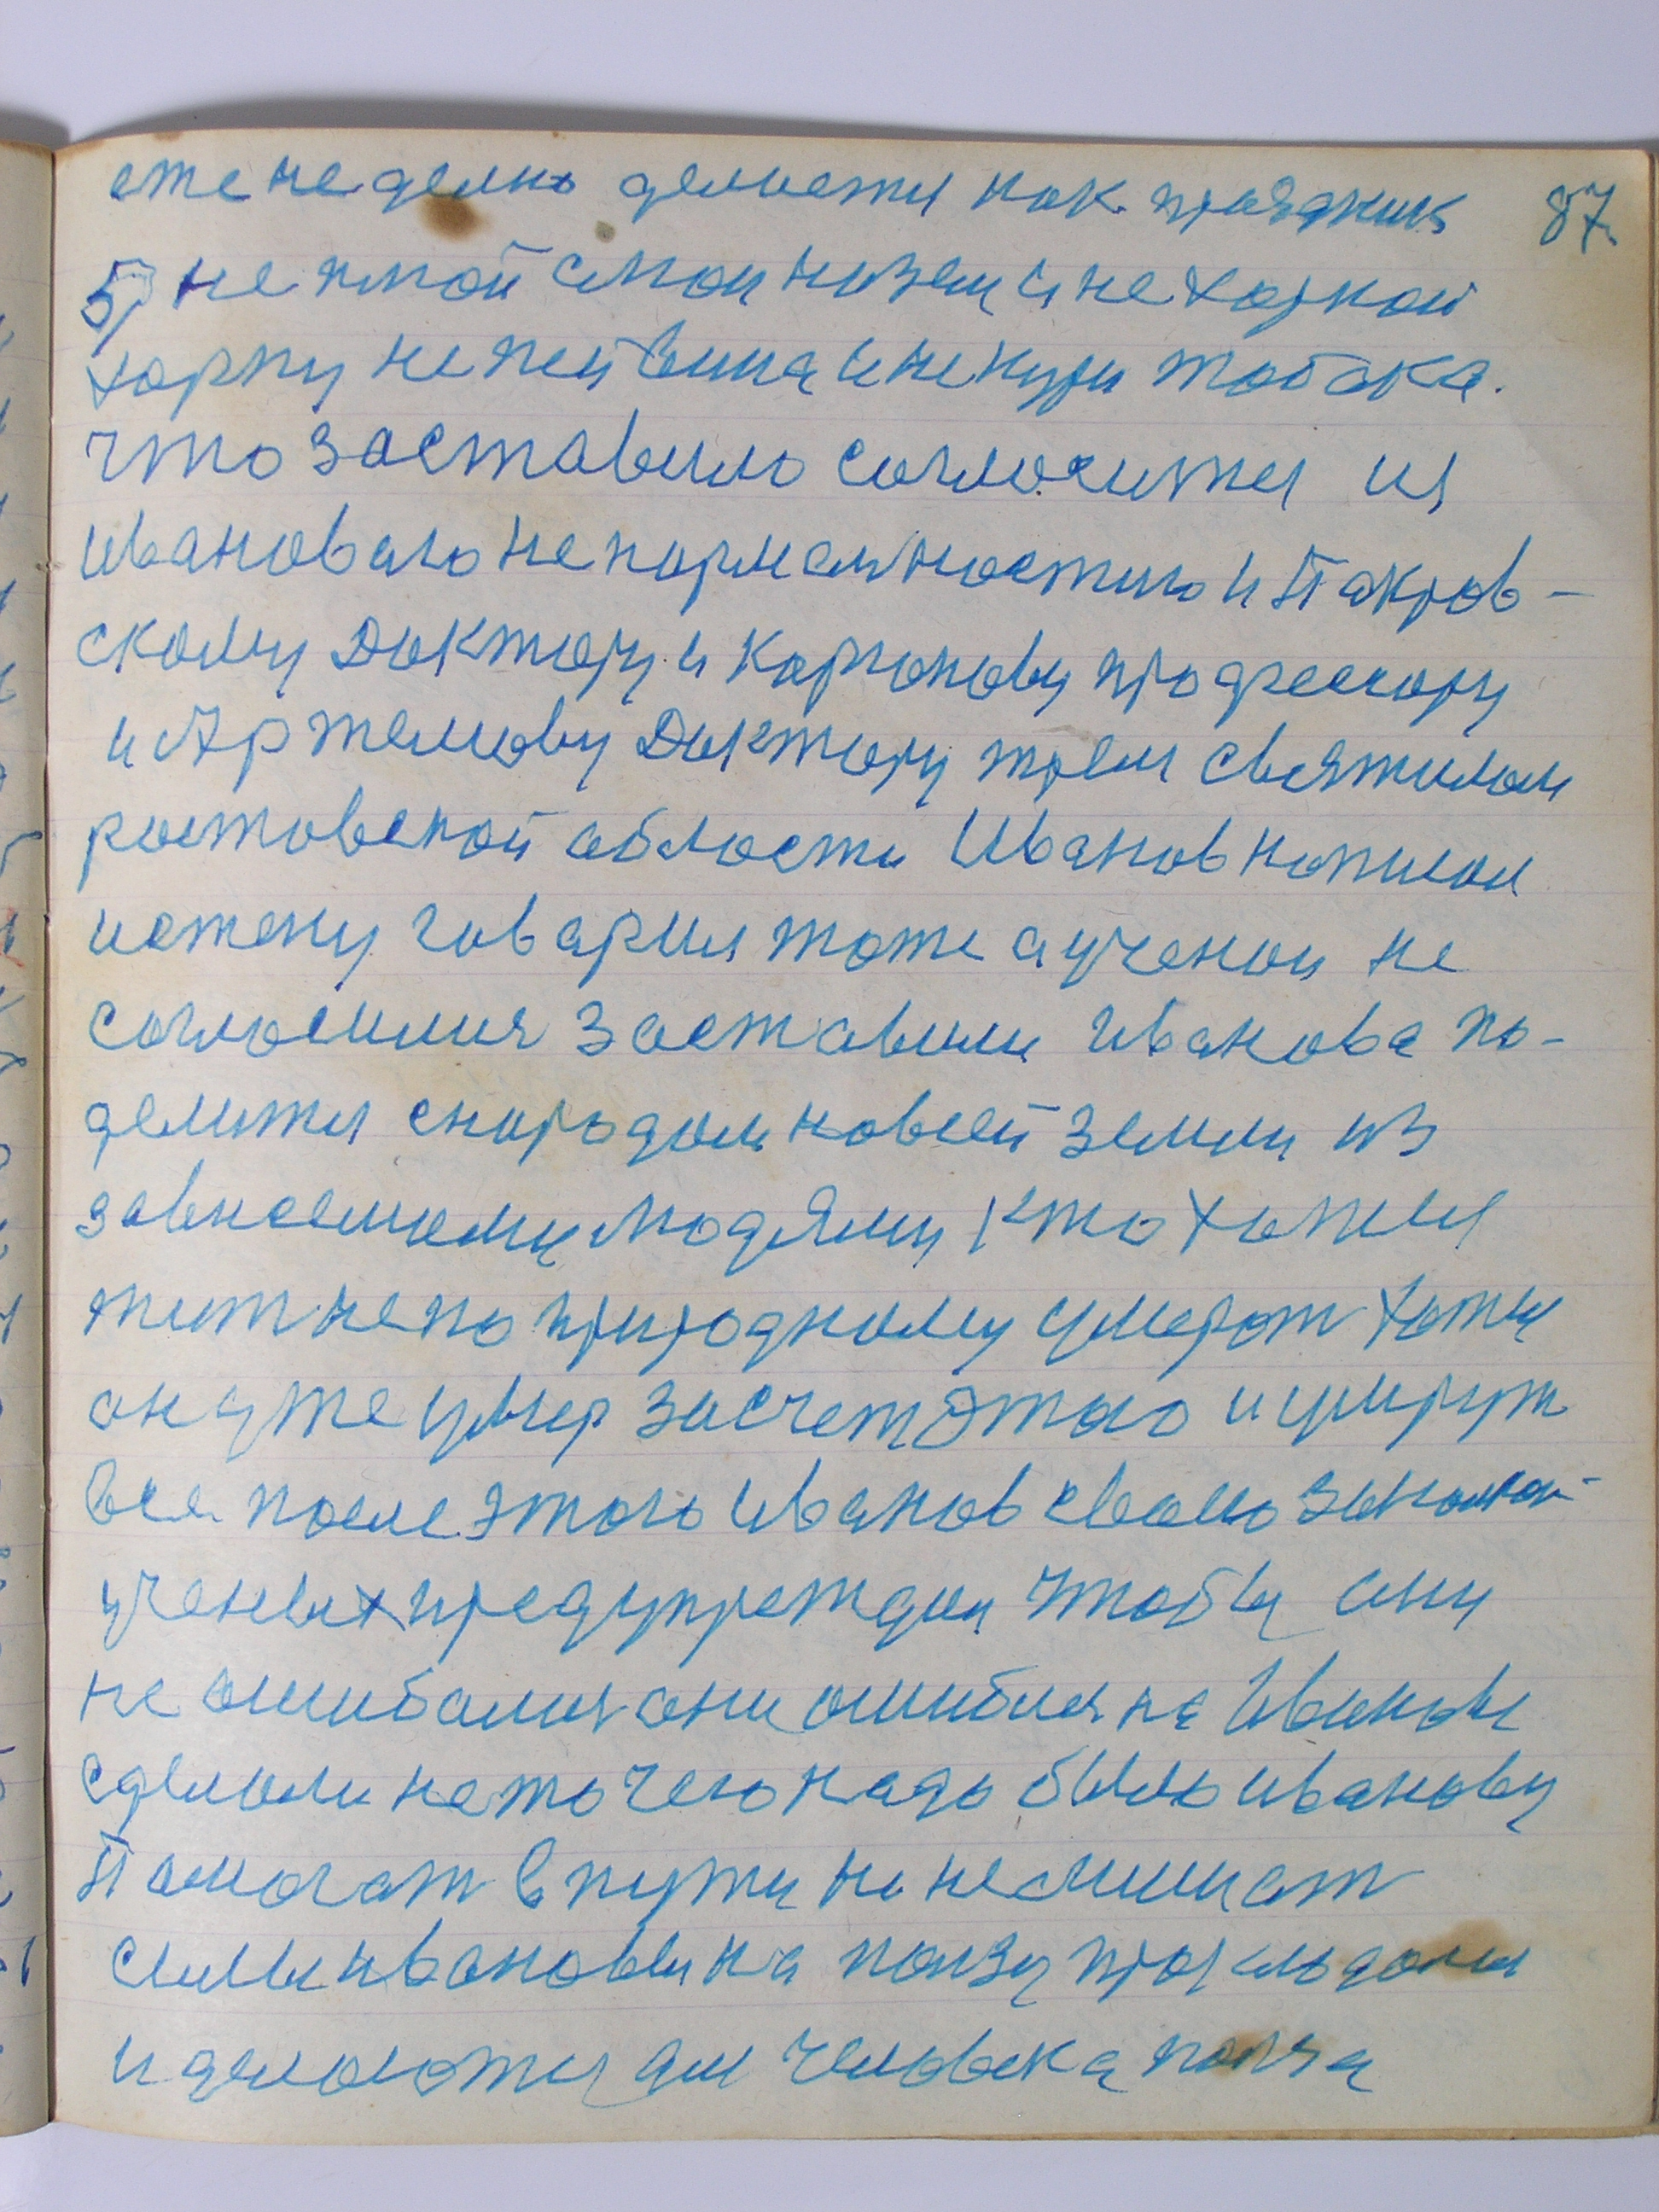 еженеделно делаетя как праздник 87.
5) не плюй слюн наземи и не харкай
харпу не пей вина и не кури табака.
что заставило согласитя из
ивановаго ненормалностию и Пакров-
скому Доктору и Корганову професору
и Артемову Доктору трем святилам
ростовской области Иванов написал
истену говарил тоже а ученаи не
согласилися заставили иванова по-
делитя снародам на всей земли из
зависемыми людями кто хотел
жит не по природному умерат хотя
он уже умер за счет этаго и умирут
все после этого иванов своею
ученых предупреждал чтобы они
не ошибалися они ошиблися на Иванове
сделали не то чего надо было иванову
Памогат в пути но не мишат
силы ивановы на ползу
и делаютя для человека ползa